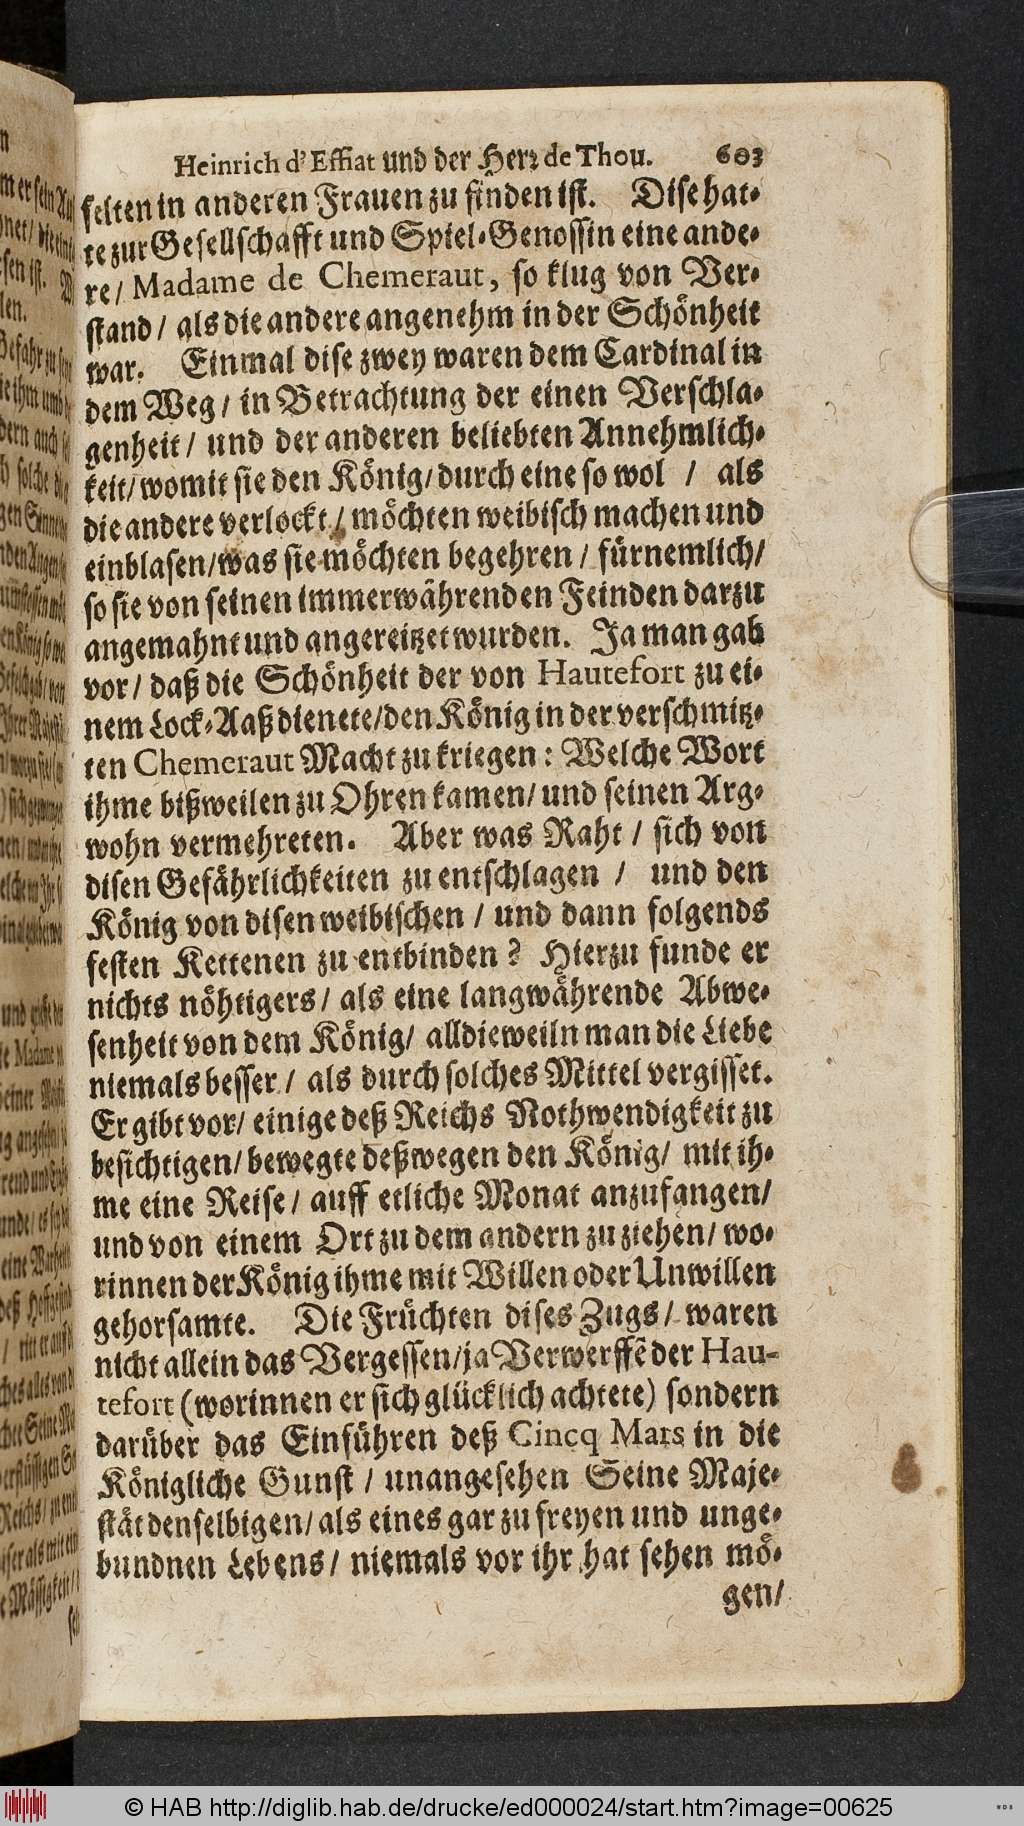 Heinrich d'Effiat und der Herꝛ de Thou. 603
selten in anderen Frauen zu finden ist. Dise hat-
te zur Gesellschafft und Spiel-Genossin eine ande-
re/ Madame de Chemeraut, so klug von Ver-
stand / als die andere angenehm in der Schönheit
war. Einmal dise zwey waren dem Cardinal in
dem Weg / in Betrachtung der einen Verschla-
genheit / und der anderen beliebten Annehmlich-
keit/ womit sie den König/ durch eine so wol / als
die andere verlockt / möchten weibisch machen und
einblasen/ was sie möchten begehren / fürnemlich/
so sie von seinen immerwährenden Feinden darzu
angemahnt und angereitzet wurden. Ja man gab
vor / daß die Schönheit der von Hautefort zu ei-
nem Lock-Aaß dienete/ den König in der verschmitz-
ten Chemeraut Macht zu kriegen: Welche Wort
ihme bißweilen zu Ohren kamen/ und seinen Arg-
wohn vermehreten. Aber was Raht / sich von
disen Gefährlichkeiten zu entschlagen / und den
König von disen weibischen / und dann folgends
festen Kettenen zu entbinden? Hierzu funde er
nichts nöhtigers / als eine langwährende Abwe-
senheit von dem König/ alldieweiln man die Liebe
niemals besser / als durch solches Mittel vergisset.
Er gibt vor/ einige deß Reichs Nothwendigkeit zu
besichtigen/ bewegte deßwegen den König/ mit ih-
me eine Reise / auff etliche Monat anzufangen/
und von einem Ort zu dem andern zu ziehen/ wo-
rinnen der König ihme mit Willen oder Unwillen
gehorsamte. Die Früchten dises Zugs / waren
nicht allein das Vergessen/ ja Verwerffẽ der Hau-
tefort (worinnen er sich glücklich achtete) sondern
darüber das Einführen deß Cincq Mars in die
Königliche Gunst / unangesehen Seine Maje-
stät denselbigen/ als eines gar zu freyen und unge-
bundnen Lebens / niemals vor ihr hat sehen mö-
gen/
© HAB http://diglib.hab.de/drucke/ed000024/start.htm?image=00625